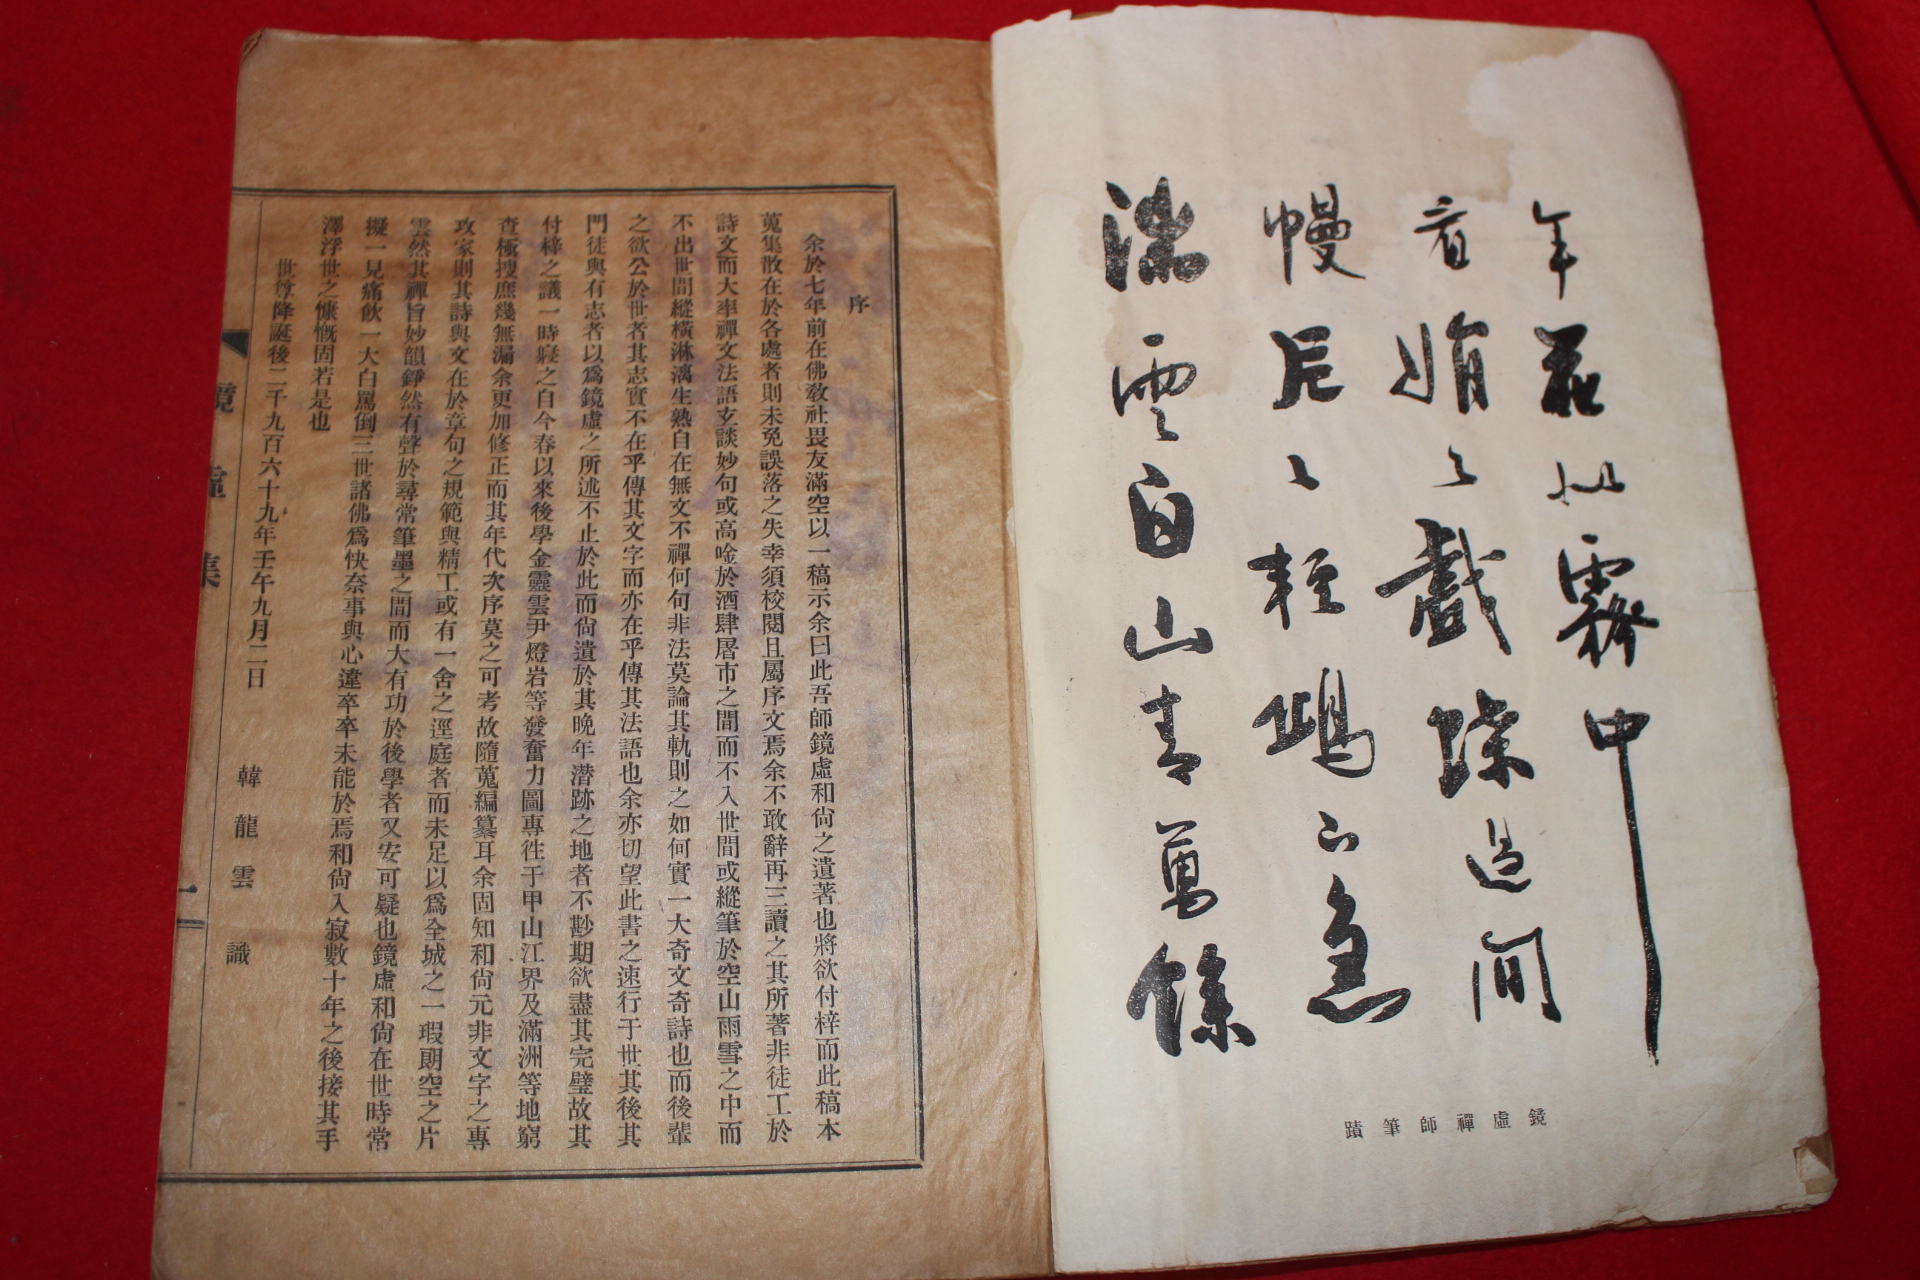 年花似霧中
看娟々戲蝶過閒
幔片々輕鷗下急
湍雲白山青萬餘
鏡虛禪師筆蹟
序
余於七年前在佛敎社畏友滿空以一稿示余曰此吾師鏡虛和尙之遺著也將欲付梓而此稿本
蒐集散在於各處者則未免誤落之失幸須校閱且屬序文焉余不敢辭再三讀之其所著非徒工於
詩文而大率禪文法語玄談妙句或高唫於酒肆屠市之間而不入世間或縱筆於空山雨雪之中而
不出世間縱橫淋漓生熟自在無文不禪何句非法莫論其軌則之如何實一大奇文奇詩也而後輩
之欲公於世者其志實不在乎傳其文字而亦在乎傳其法語也余亦切望此書之速行于世其後其
門徒與有志者以爲鏡虛之所述不止於此而尙遺於其晩年潛跡之地者不尠期欲盡其完璧故其
付梓之議一時寢之自今春以來後學金靈雲尹燈岩等發奮力圖專徃于甲山江界及滿洲等地窮
查極搜庶幾無漏余更加修正而其年代次序莫之可考故隨蒐編纂耳余固知和尙元非文字之專
攻家則其詩與文在於章句之規範與精工或有一舍之逕庭者而未足以爲全城之一瑕閬空之片
雲然其禪旨妙韻錚然有聲於尋常筆墨之間而大有功於後學者又安可疑也鏡虛和尙在世時常
擬一見痛飮一大白罵倒三世諸佛爲快奈事與心違卒卒未能於焉和尙入寂數十年之後接其手
澤浮世之慷慨固若是也
世尊降誕後二千九百六十九年壬午九月二日
韓龍雲 識
鏡虛集
一